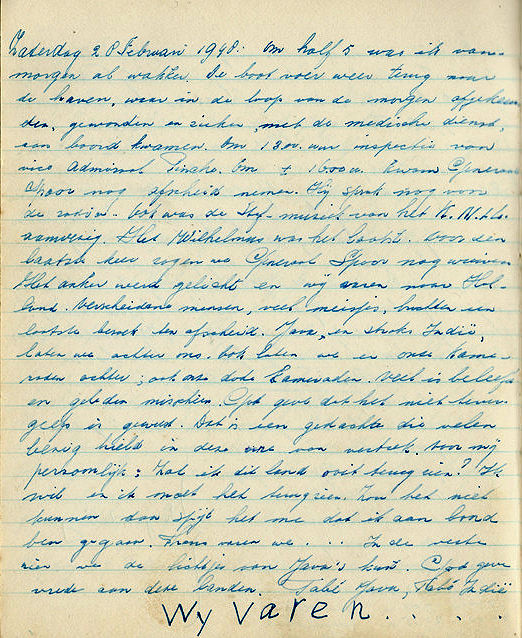 Zaterdag 28 Februari 1948: Om half 5 was ik van-
morgen al wakker. De boot voer weer terug naar
de haven, waar in de loop van de morgen
den, gewonden en zieken, met de medische dienst,
aan boord kwamen. Om 1300 uur inspectie van
vice admiraal Pinke. Om ± 1600 u. kwam Generaal
Spoor nog afscheid nemen. Hij sprak nog voor
de radio. Ook was de Staf-muziek van het K.N.I.L.
aanwezig. Het Wilhelmus was het laatst. Voor den
laatste keer zagen we Generaal Spoor nog wuiven.
Het anker werd gelicht en wij varen naar Hol-
land. Verscheidene mensen, veel meisjes, brachten een
laatste bezoek ten afscheid. Java, en straks Indië,
laten we achter ons. Ook laten we er onze Kame-
raden achter; ook onze dode Kameraden. Veel is beleefd
en geleden misschien. God geve dat het niet tever-
geefs is geweest. Dat is een gedachte die velen
bezig hield in deze ure van vertrek. Voor mij
persoonlijk: Zal ik dit land ooit terug zien? Ik
wil en ik moet het terugzien. Zou het niet
kunnen dan spijt het me dat ik aan boord
ben gegaan. Thans varen we ... In de verte
zien we de lichtjes van Java's kust. God geve
vrede aan deze landen. Tabé Java, Tabé Indië
Wy varen. . . .